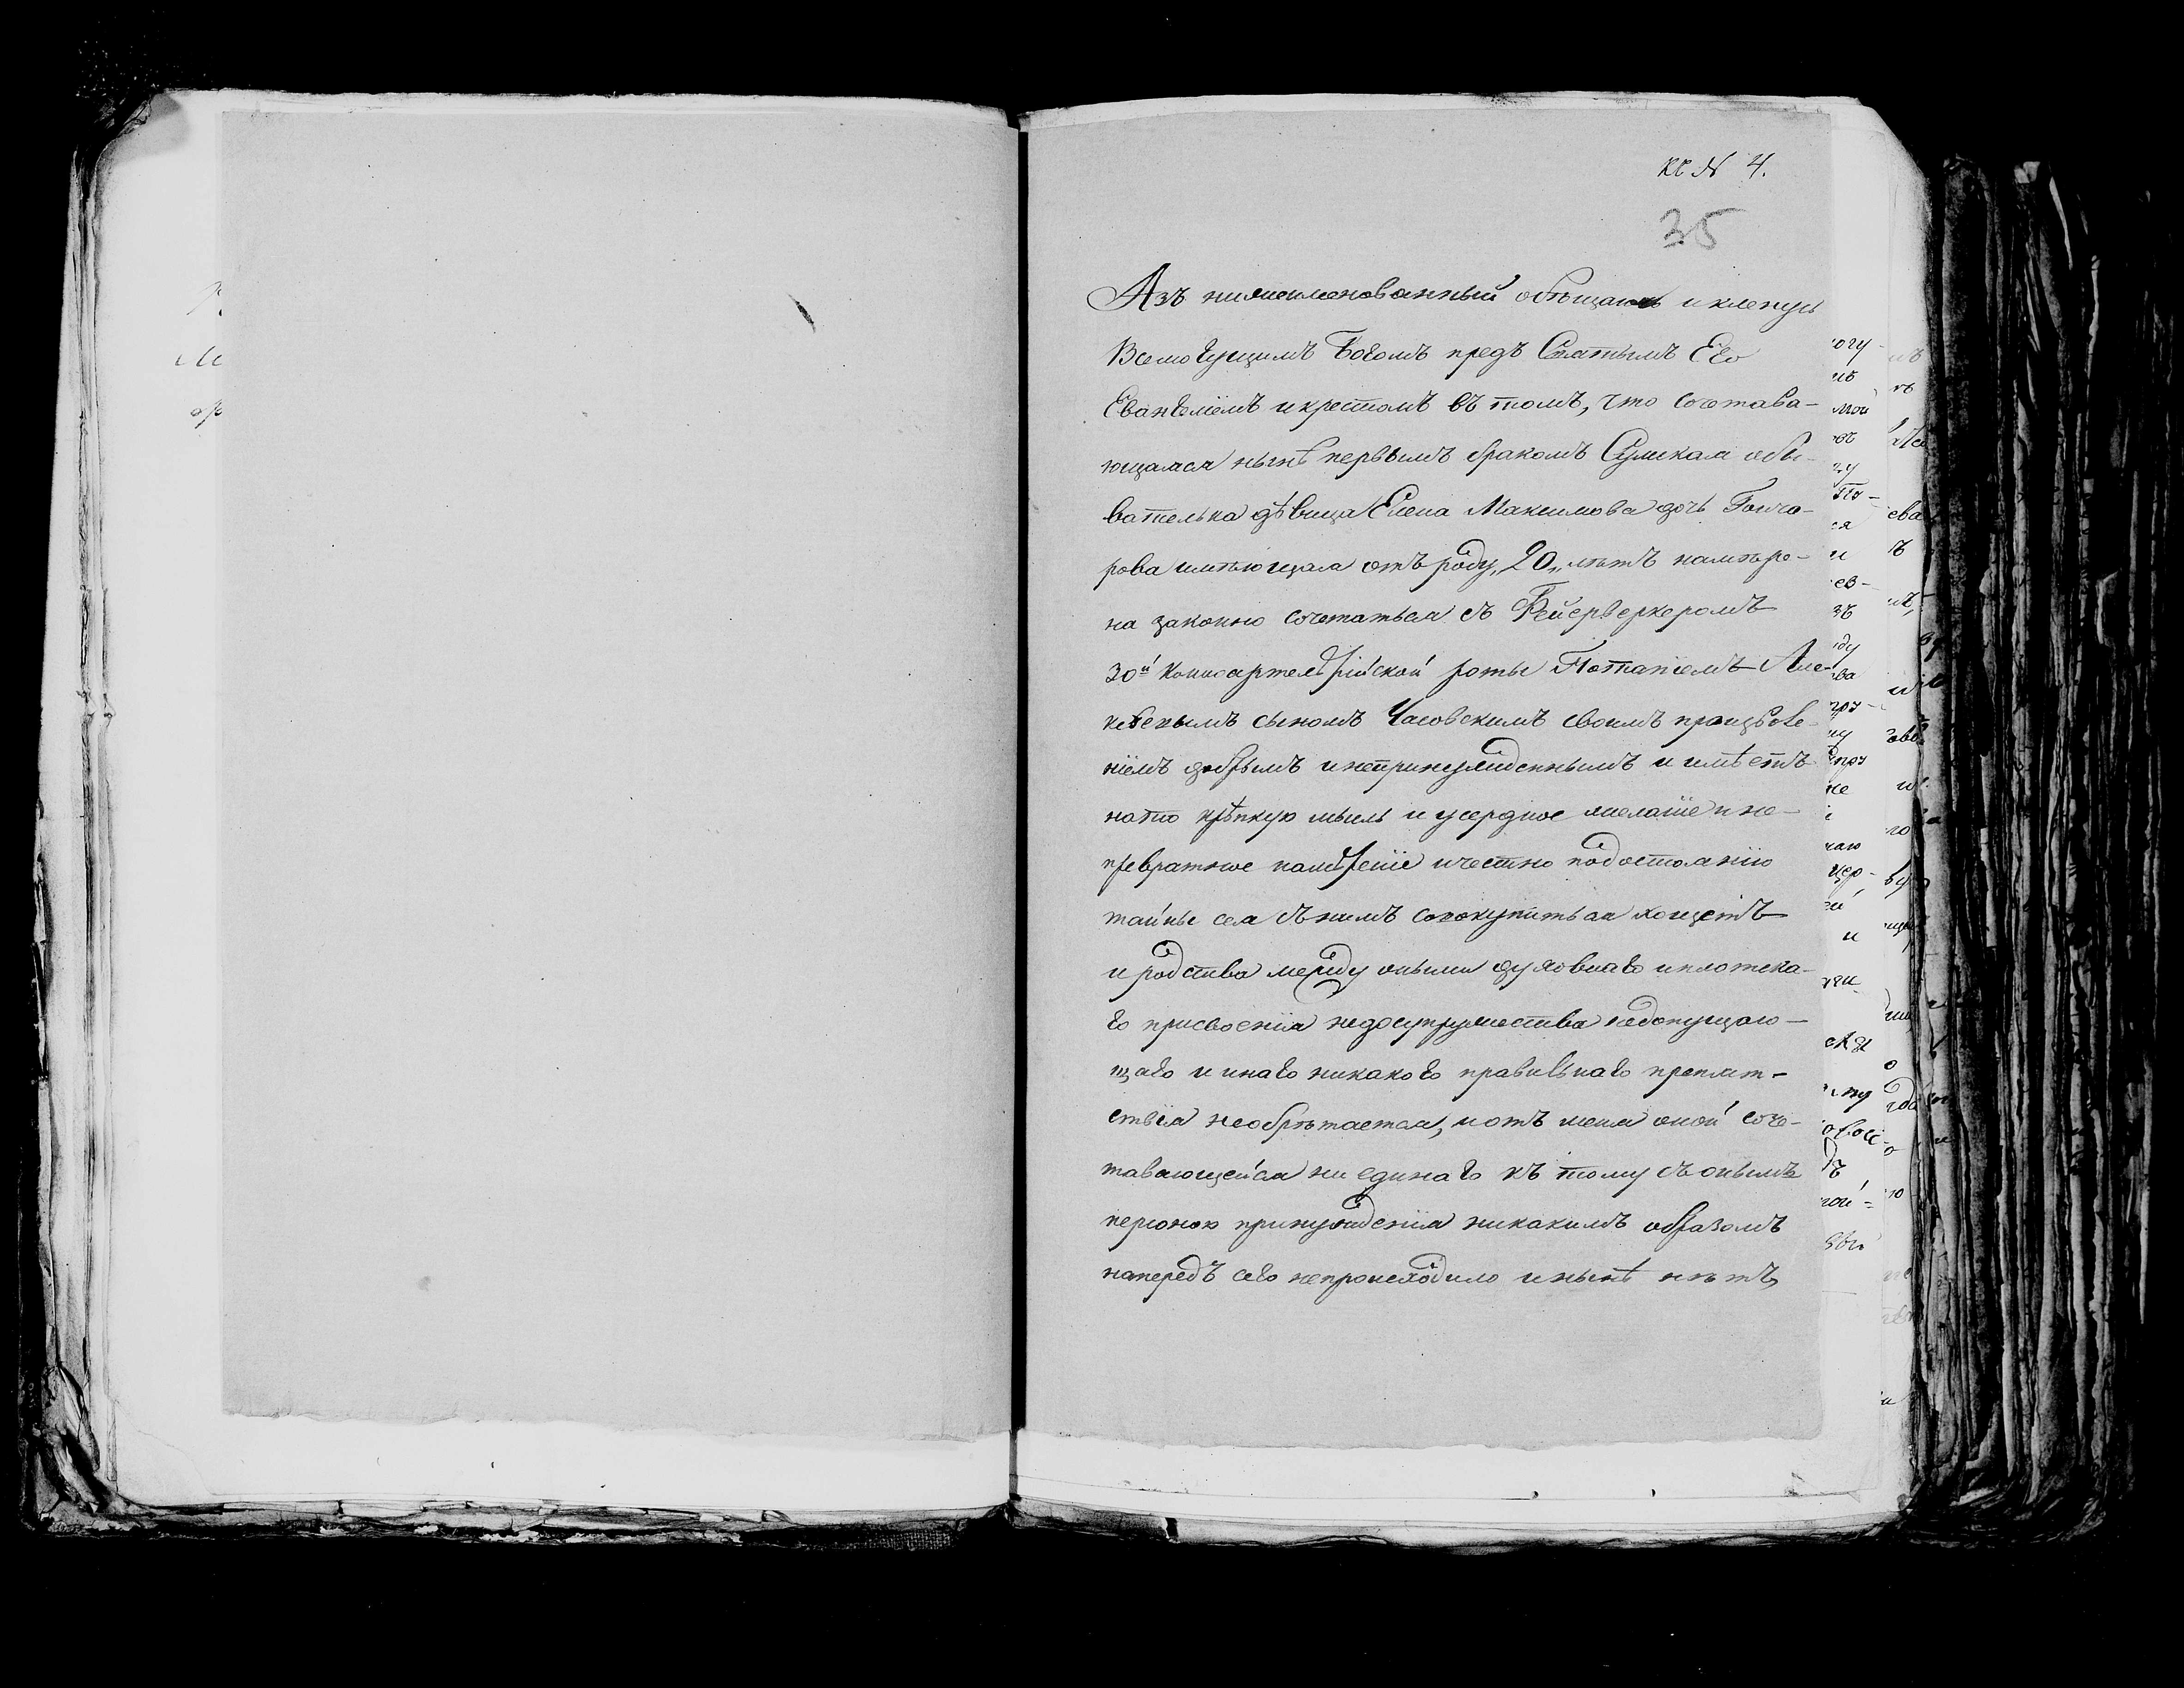 къ N 4.
35
Азъ нижеименованный обѣщаюсь и кленусь
Всемогущимъ Богомъ предъ Святымъ Его
Евангелiемъ и крестомъ въ томъ, что сочетава-
ющаяся нынѣ первымъ бракомъ Сумская обы-
вателька дѣвица Елена Максимова дочь Гончо-
рова имѣющая отъ роду „20„ лѣтъ намѣре-
на законно сочетаться съ Фейерверкеромъ
30й Конноартелѣрiйской роты Потапiемъ Але-
сыномъ Часовскимъ своимъ произволе-
нiемъ добрымъ и непринужденнымъ и имѣетъ
нато крѣпкую мысль и усердное желанiе и не-
превратное намѣренiе и честно подостоянiю
тайны сея сънимъ совокупиться хощетъ
и родства между оными духовнаго и плотска-
го присвоенiя недосупружества недопущаю-
щаго и инаго никакого правильнаго препят-
ствiя необрѣтается, и отъ меня оной соче-
тавающейся ни единаго къ тому съ онымъ
персоною принужденiя никакимъ образомъ
напередъ сего непроисходило и нынѣ нѣтъ,